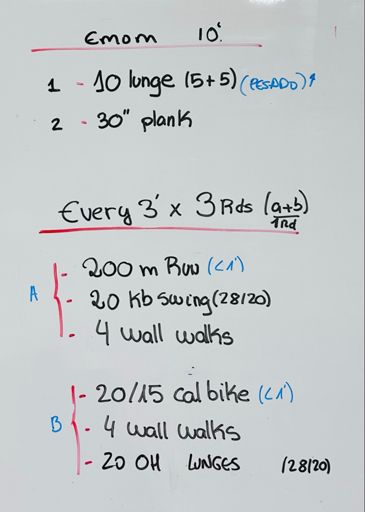 Emom 10'
1 - 10 lunge (5+5) (PESADO)↑
2 - 30" plank
Every 3' x 3 Rds (a+b)
1Rd
A
- 200 m Run (<1')
- 20 Kb swing (28/20)
- 4 wall walks
B
- 20/15 cal bike (<1')
- 4 wall walks
- 20 OH LUNGES (28/20)